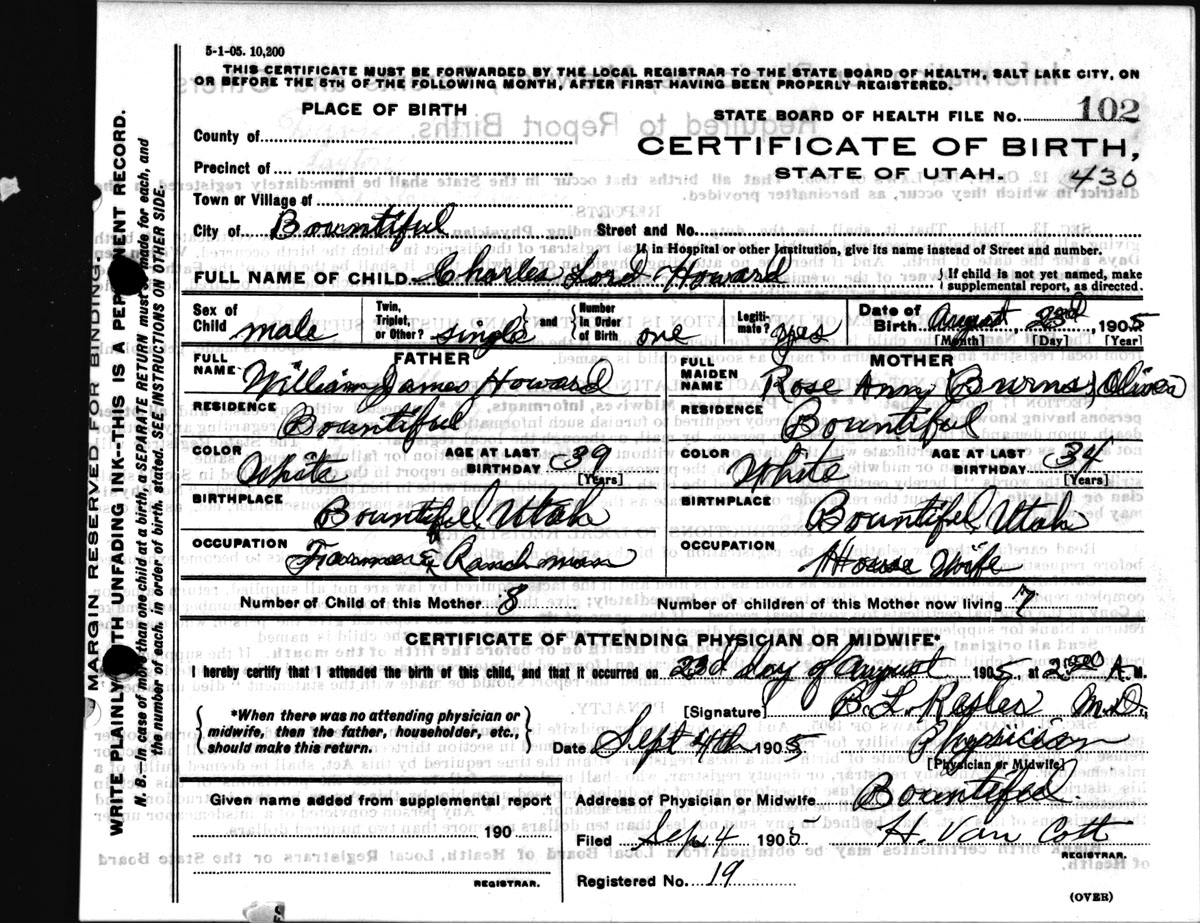 5-1-05. 10,200
THIS CERTIFICATE MUST BE FORWARDED BY THE LOCAL REGISTRAR TO THE STATE BOARD OF HEALTH, SALT LAKE CITY, ON
OR BEFORE THE 5TH OF THE FOLLOWING MONTH, AFTER FIRST HAVING BEEN PROPERLY REGISTERED.
PLACE OF BIRTH
STATE BOARD OF HEALTH FILE NO. 102
County of
CERTIFICATE OF BIRTH,
Precinct of
STATE OF UTAH. 430
Town or Village of
City of Bountiful Street and No.
If in Hospital or other Institution, give its name instead of Street and number.
FULL NAME OF CHILD Charles Lord Howard { If child is not yet named, make
supplemental report, as directed.
Sex of Child male Twin, Triplet, or Other? single and Number In Order of Birth one Legiti-mate? yes Date of Birth August 23rd 1905
[Month] [Day] [Year]
FATHER MOTHER
FULL NAME William James Howard FULL MAIDEN NAME Rose Ann Burns
RESIDENCE Bountiful RESIDENCE Bountiful
COLOR White AGE AT LAST BIRTHDAY 39 [Years] COLOR White AGE AT LAST BIRTHDAY 34 [Years]
BIRTHPLACE Bountiful, Utah BIRTHPLACE Bountiful, Utah
OCCUPATION Farmer & Ranchman OCCUPATION House Wife
Number of Child of this Mother 8 Number of children of this Mother now living 7
CERTIFICATE OF ATTENDING PHYSICIAN OR MIDWIFE*
I hereby certify that I attended the birth of this child, and that it occurred on 23d day of August 1905, at A. M.
[Signature] B. L. M.D.
{ *When there was no attending physician or
midwife, then the father, householder, etc.,
should make this return. }
Date Sept 4th 1905 Physician
[Physician or Midwife]
Given name added from supplemental report
Address of Physician or Midwife Bountiful.
190
Filed Sep 4 1905 H. Van Cott
REGISTRAR.
REGISTRAR.
Registered No. 19
(OVER)
MARGIN RESERVED FOR BINDING.
WRITE PLAINLY WITH UNFADING INK--THIS IS A PERMANENT RECORD.
N. B.--In case of more than one child at a birth, a SEPARATE RETURN must be made for each, and
the number of each, in order of birth, stated. SEE INSTRUCTIONS ON OTHER SIDE.